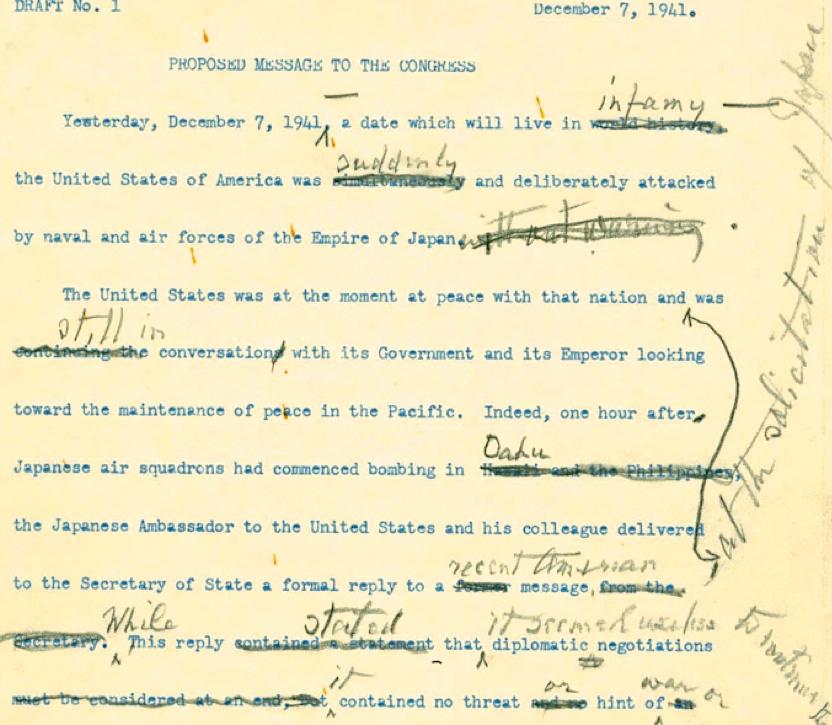 DRAFT No. 1 December 7, 1941.
PROPOSED MESSAGE TO THE CONGRESS
infamy —
Yesterday, December 7, 1941, a date which will live in world history,
suddenly
the United States of America was simultaneously and deliberately attacked
by naval and air forces of the Empire of Japan. without warning.
The United States was at the moment at peace with that nation and was
still in
continuing the conversations with its Government and its Emperor looking
toward the maintenance of peace in the Pacific. Indeed, one hour after,
Oahu
Japanese air squadrons had commenced bombing in Hawaii and the Philippines,
the Japanese Ambassador to the United States and his colleague delivered
recent American
to the Secretary of State a formal reply to a former message, from the
While stated it seemed useless to continue
Secretary. This reply contained a statement that diplomatic negotiations
it or war or
must be considered at an end, but contained no threat and no hint of an
at the solicitation of Japan